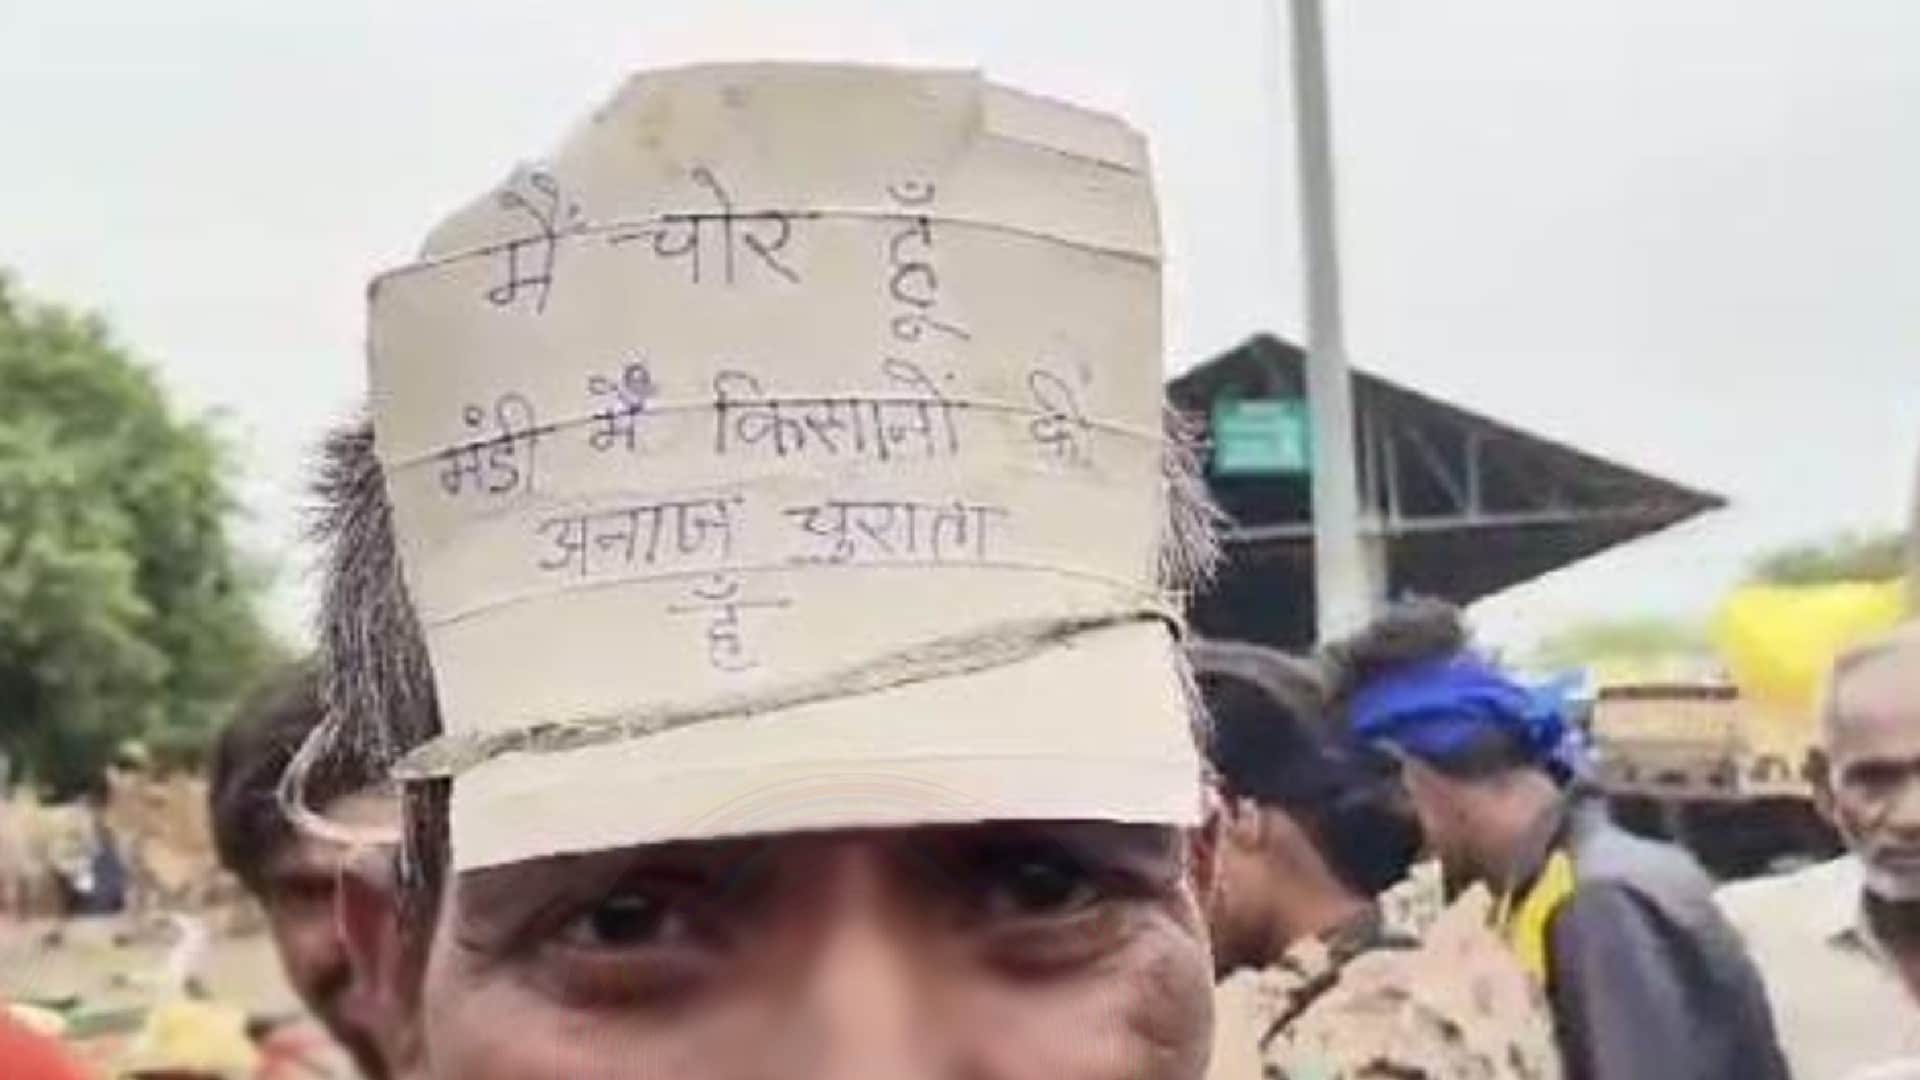 मैं चोर हूँ
मंडी में किसानों की
अनाज चुराता
हूँ